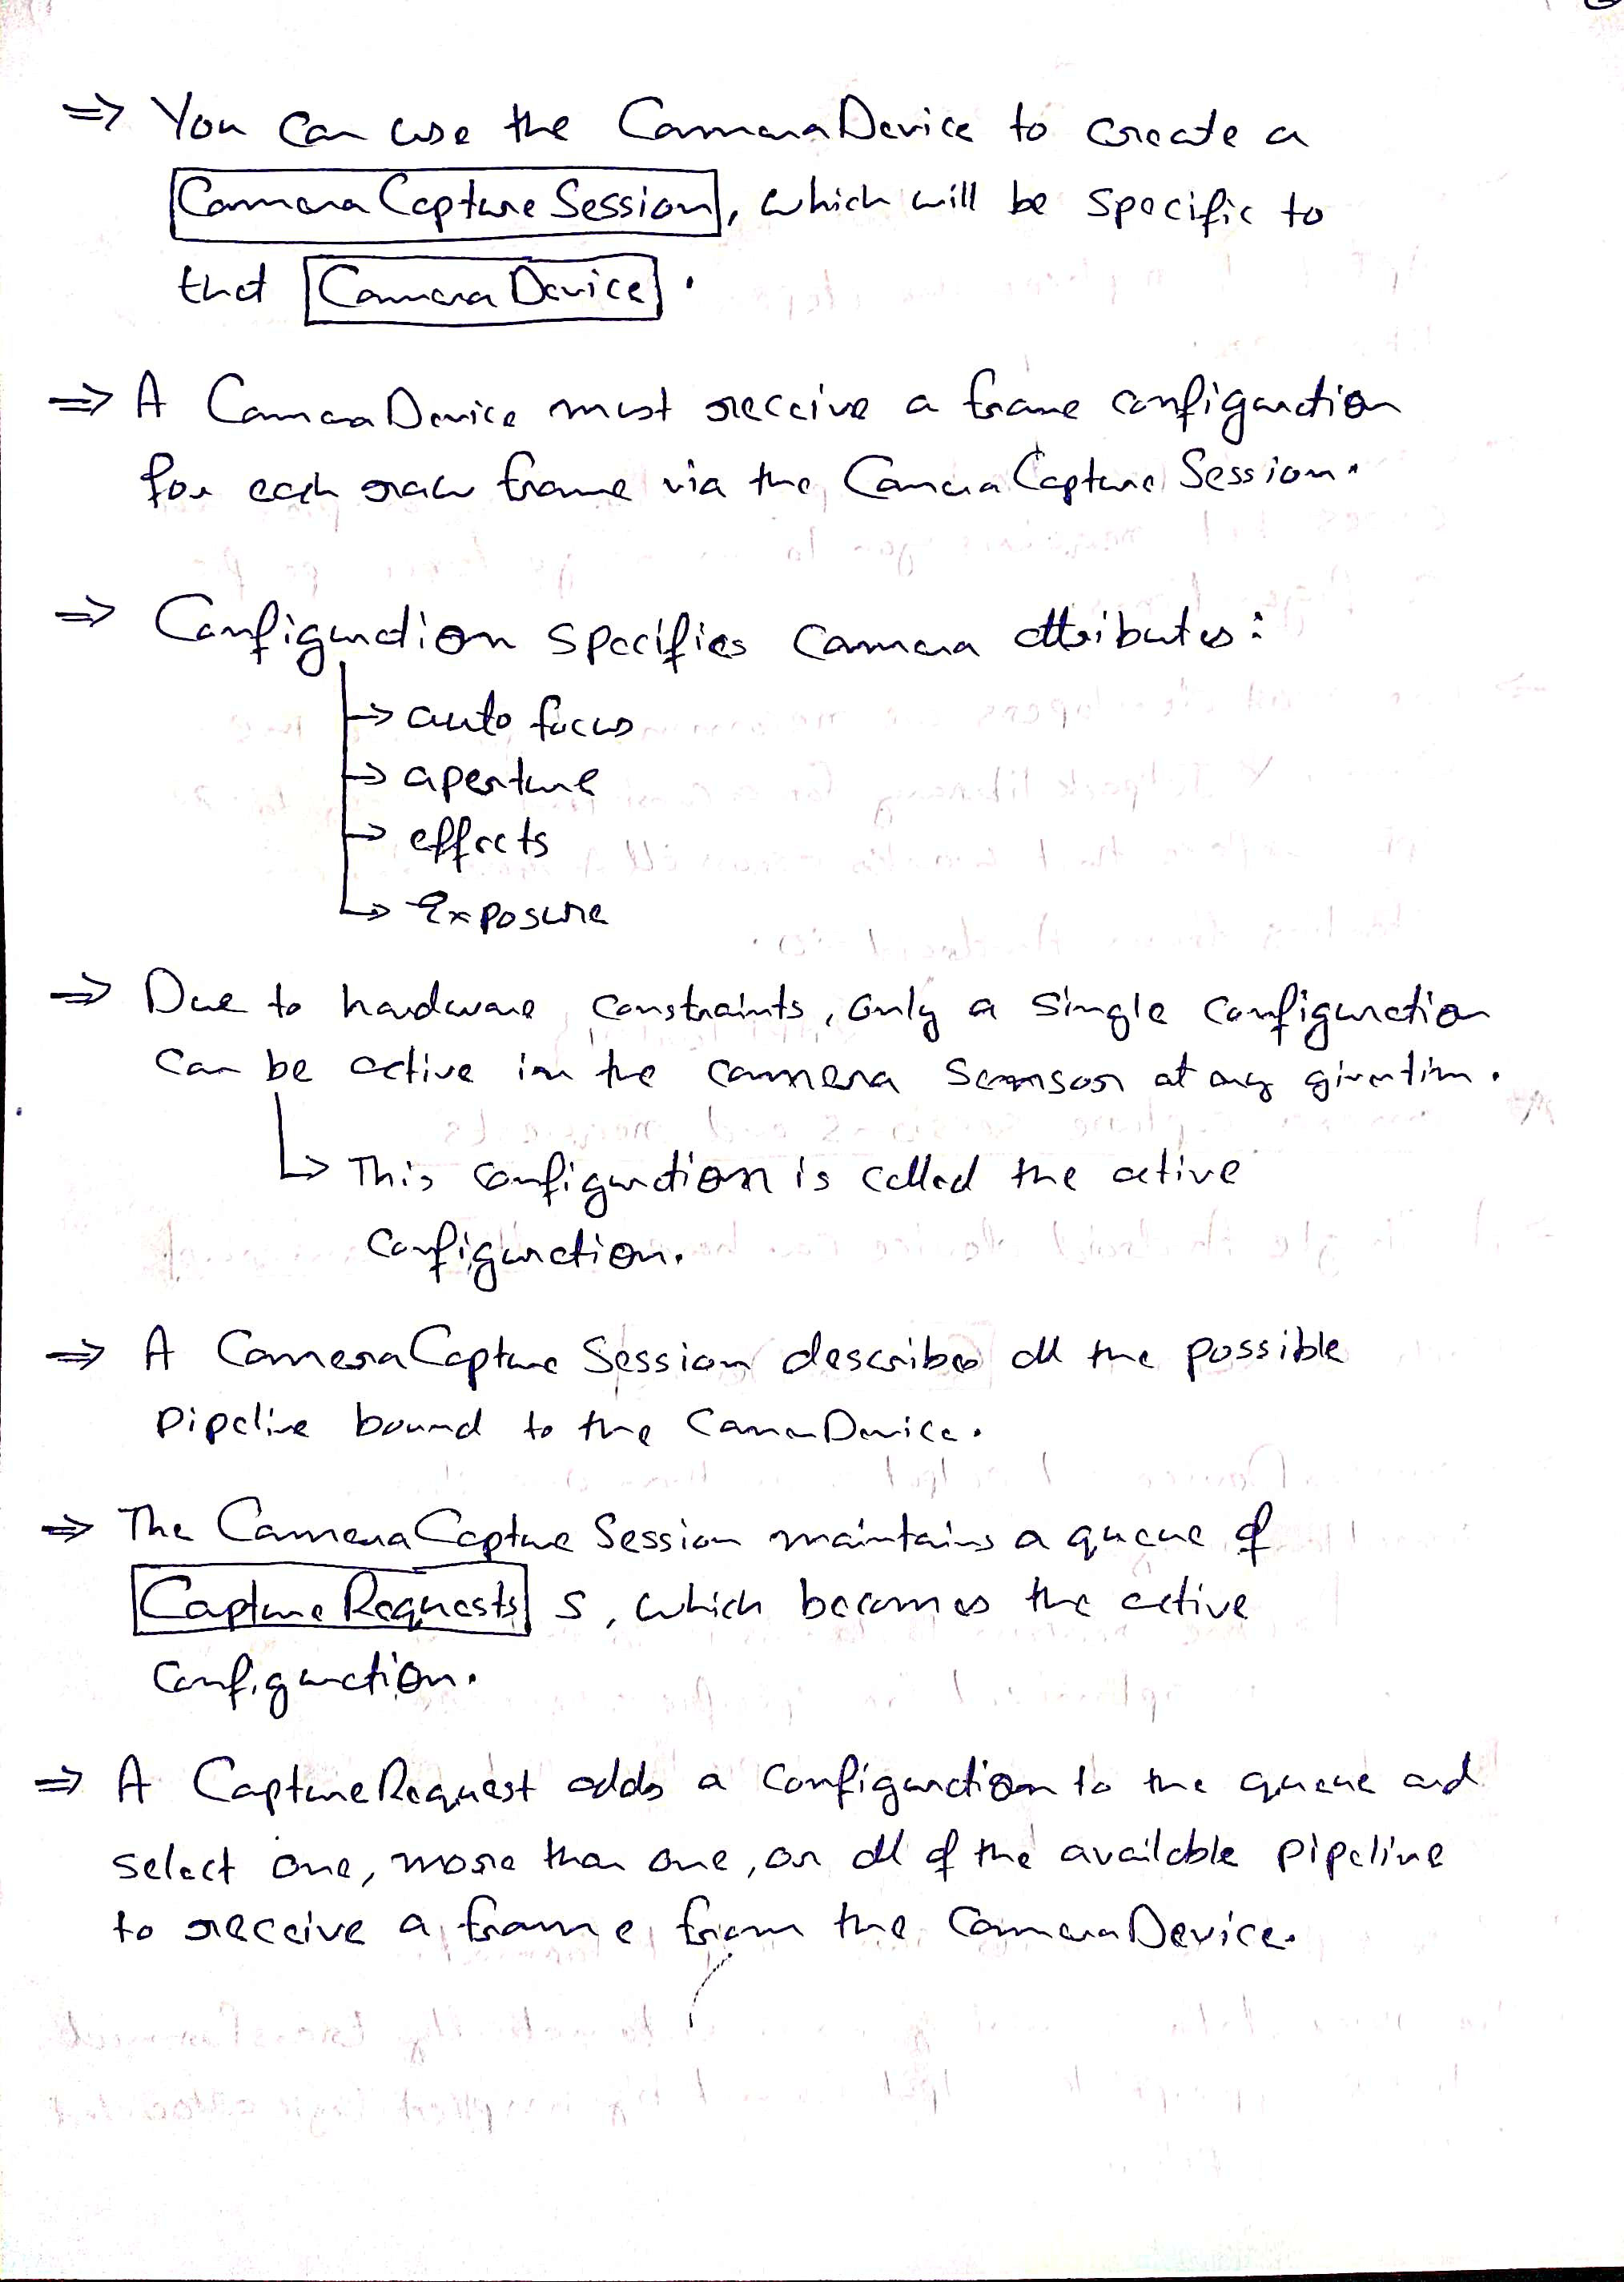 ⇒ You can use the CameraDevice to create a
CameraCaptureSession, which will be specific to
that CameraDevice.
⇒ A CameraDevice must receive a frame configuration
for each raw frame via the CameraCaptureSession.
⇒ Configuration specifies camera attributes:
→ auto focus
→ aperture
→ effects
→ Exposure
⇒ Due to hardware constraints, only a single configuration
can be active in the camera sensor at any given time.
↳ This configuration is called the active
configuration.
⇒ A CameraCaptureSession describes all the possible
pipeline bound to the CameraDevice.
⇒ The CameraCaptureSession maintains a queue of
CaptureRequests s, which becomes the active
configuration.
⇒ A CaptureRequest adds a configuration to the queue and
select one, more than one, or all of the available pipeline
to receive a frame from the CameraDevice.